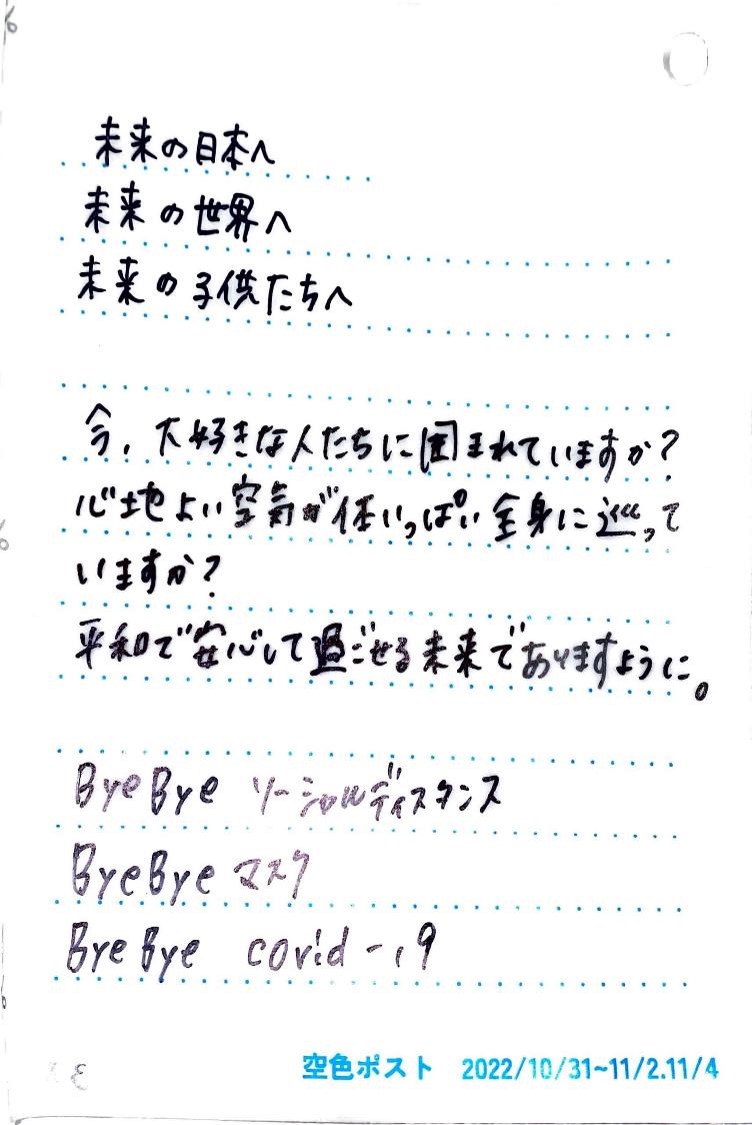 未来の日本へ
未来の世界へ
未来の子供たちへ
今、大好きな人たちに囲まれていますか？
心地よい空気が体いっぱい全身に巡って
いますか？
平和で安心して過ごせる未来でありますように。
Bye Bye ソーシャルディスタンス
Bye Bye マスク
Bye Bye covid-19
空色ポスト 2022/10/31~11/2.11/4